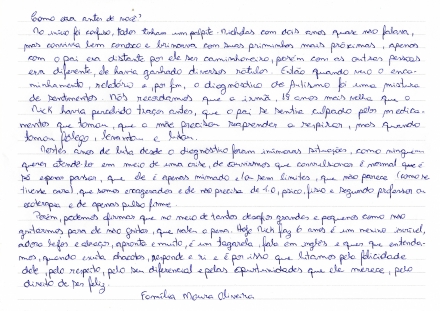 Como era antes de você?
No início foi confuso, todos tinham um palpite. Nicholas com dois anos quase não falava,
mas convivia bem conosco e brincava com suas priminhas mais próximas, apenas
com o pai era distante por ele ser caminhoneiro, porém com as outras pessoas
era diferente, ele havia ganhado diversos rótulos. Então quando veio o enca-
minhamento, relatório e, por fim, o diagnóstico de Autismo foi uma mistura
de sentimentos. Nós recordamos que a irmã, 15 anos mais velha que o
Nick havia percebido traços antes, que o pai se sentia culpado pelo medica-
mento que tomou, que a mãe precisou reaprender a respirar, mas quando
tomou fôlego, levantou e lutou.
Nestes anos de luta desde o diagnóstico foram inúmeras situações, como ninguém
querer atendê-lo em meio de uma crise, de ouvirmos que convulsionar é normal que é
só esperar passar, que ele é apenas mimado e/ou sem limites, que não parece (como se
tivesse cara), que somos exagerados e de não precisa de T.O, psico, fisio e segundo professor ou
ecoterapia e de apenas pulso firme.
Porém, podemos afirmar que no meio de tantos desafios grandes e pequenos como não
gritarmos para ele não gritar, que valeu a pena. Hoje Nick faz 6 anos é um menino incrível,
adora beijos e abraços, apronta e muito, é um tagarela, fala em inglês e quer que entenda-
mos, quando excita chacotas, responde e ri e é por isso que lutamos pela felicidade
dele, pelo respeito, pelo seu diferencial e pelas oportunidades que ele merece, pelo
direito de ser feliz.
Família Moura Oliveira